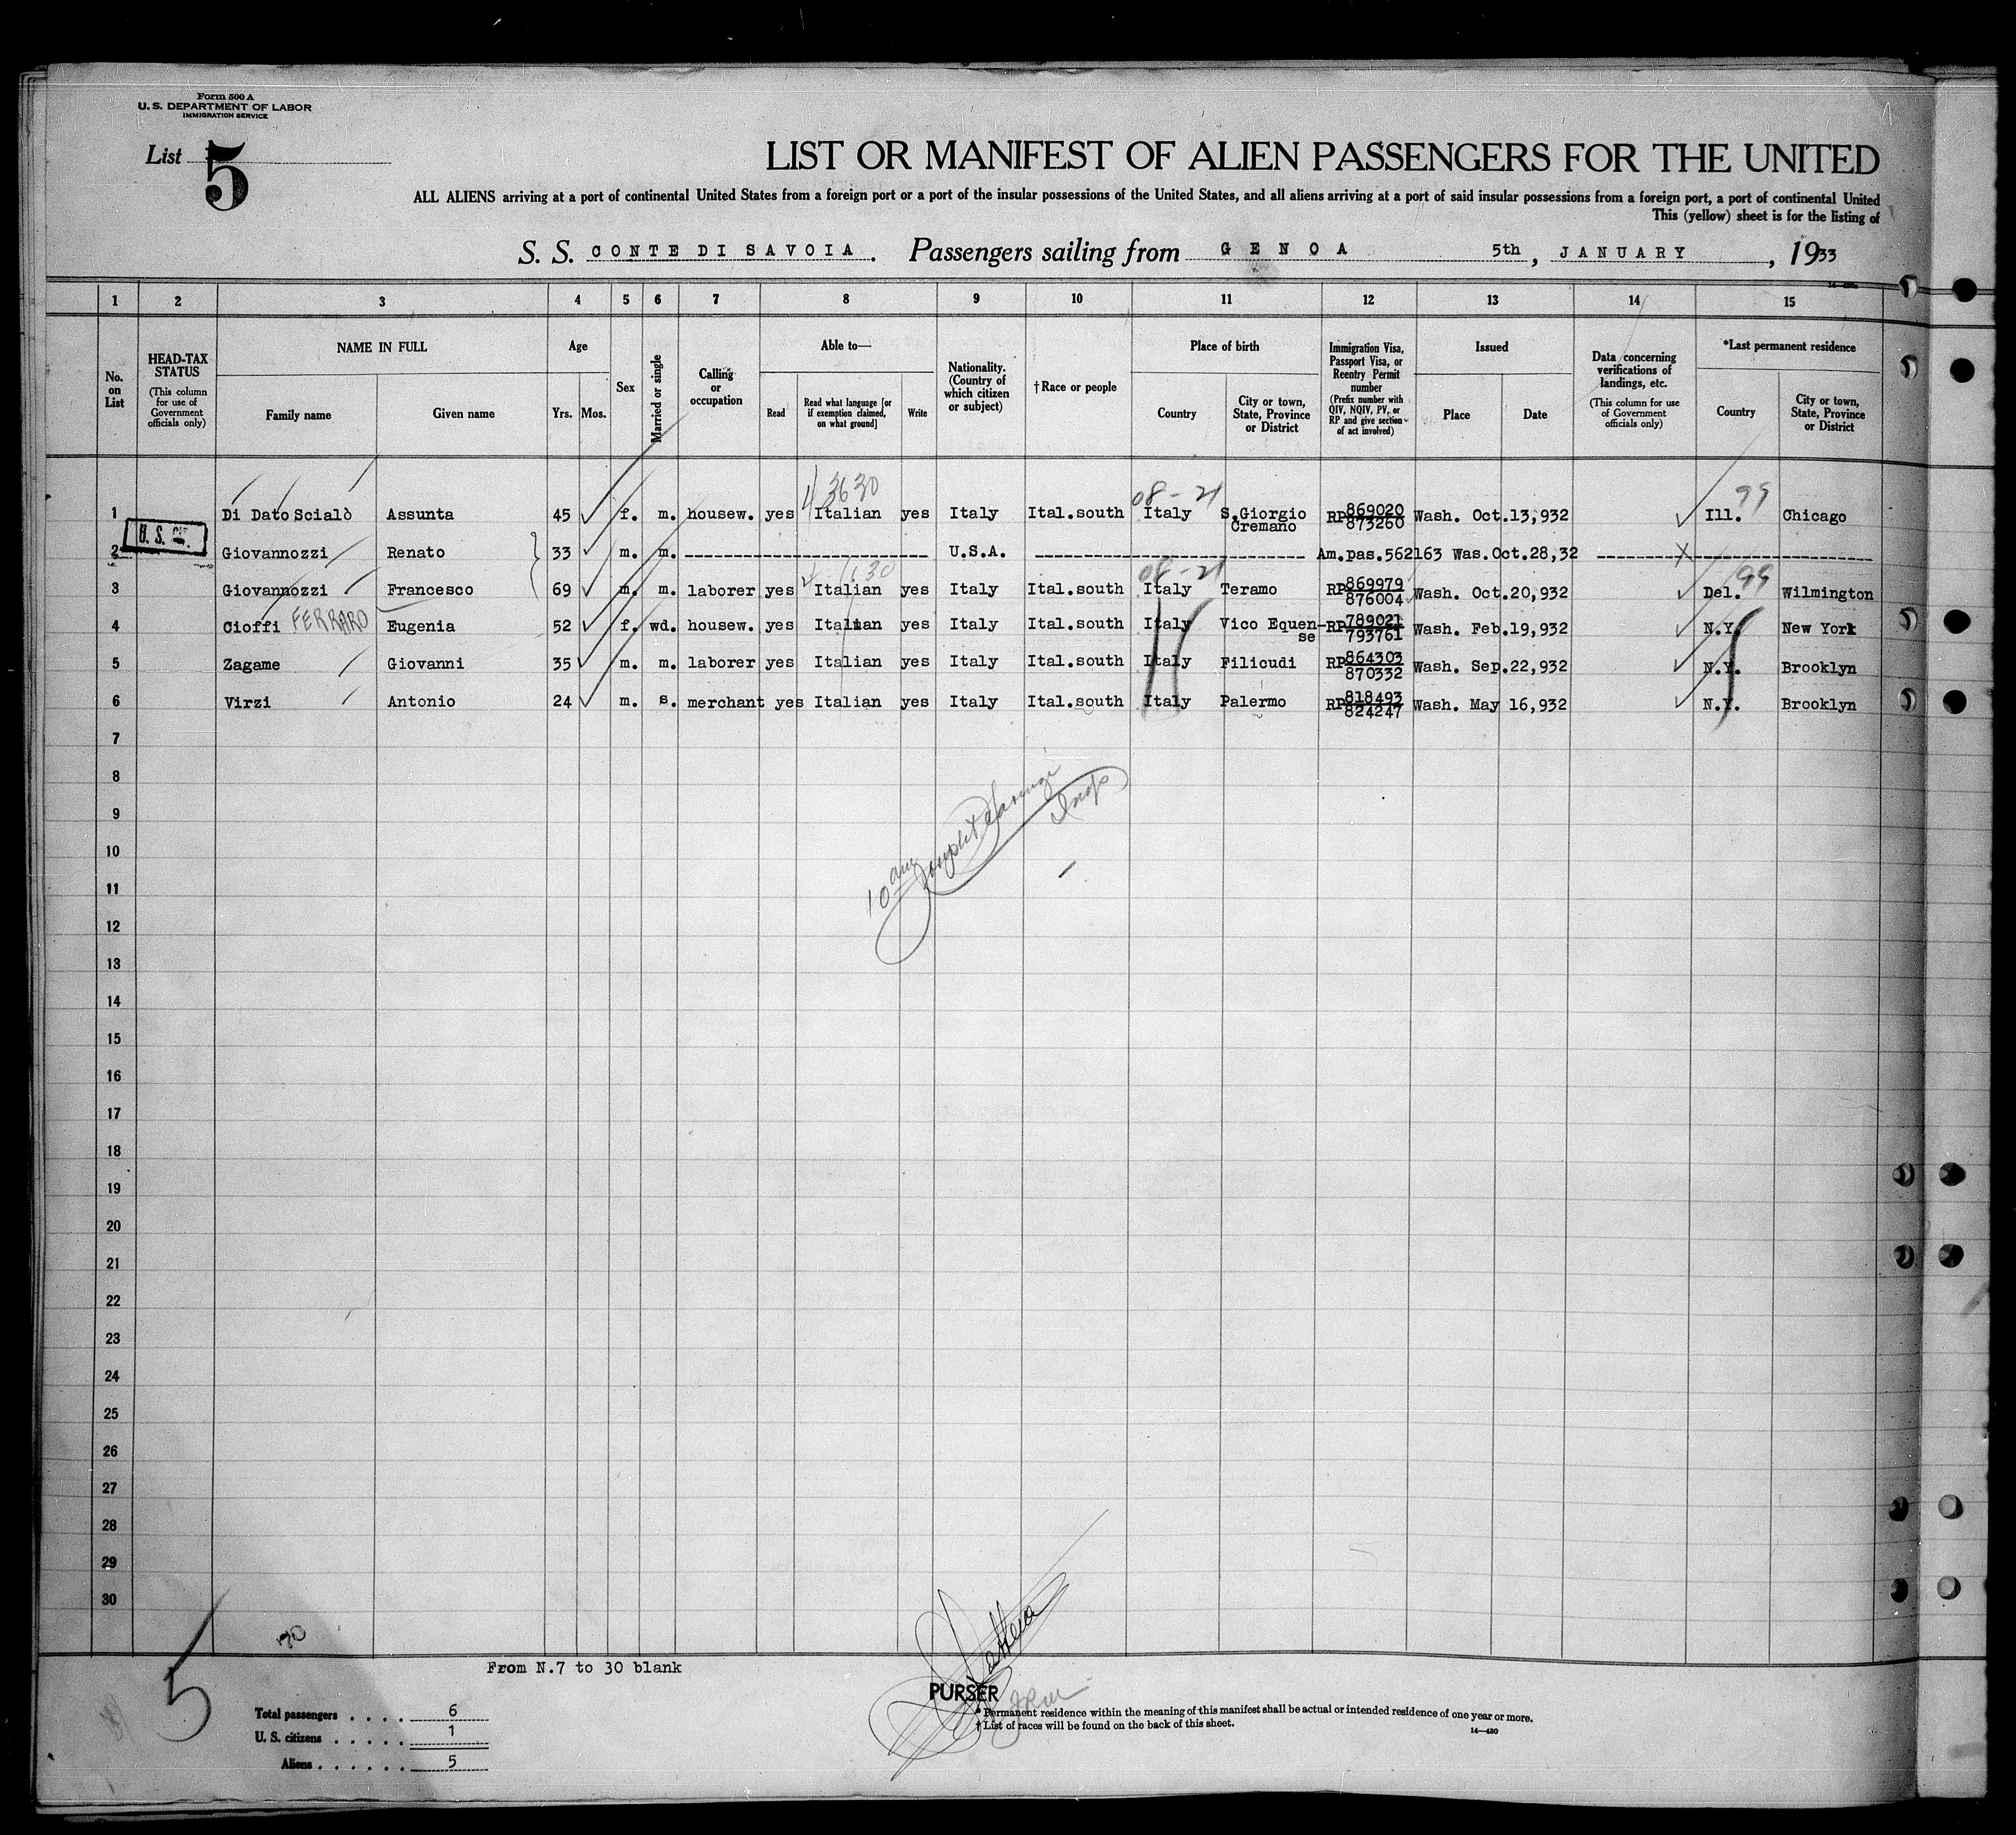 Form 500 A
U. S. DEPARTMENT OF LABOR
IMMIGRATION SERVICE
List 5
LIST OR MANIFEST OF ALIEN PASSENGERS FOR THE UNITED
ALL ALIENS arriving at a port of continental United States from a foreign port or a port of the insular possessions of the United States, and all aliens arriving at a port of said insular possessions from a foreign port, a port of continental United
This (yellow) sheet is for the listing of
S. S. CONTE DI SAVOIA. Passengers sailing from GENOA 5th, JANUARY, 1933
1 2 3 4 5 6 7 8 9 10 11 12 13 14 15
No. on List
HEAD-TAX STATUS (This column for use of Government officials only)
NAME IN FULL
Family name Given name
Age
Yrs. Mos.
Sex
Married or single
Calling or occupation
Able to—
Read Read what language [or if exemption claimed, on what ground] Write
Nationality. (Country of which citizen or subject)
†Race or people
Place of birth
Country City or town, State, Province or District
Immigration Visa, Passport Visa, or Reentry Permit number (Prefix number with QIV, NQIV, PV, or RP and give section of act involved)
Issued
Place Date
Data concerning verifications of landings, etc. (This column for use of Government officials only)
*Last permanent residence
Country City or town, State, Province or District
4 3630 08-21 99
1 Di Dato Scialò Assunta 45 f. m. housew. yes Italian yes Italy Ital.south Italy S.Giorgio Cremano RP 869020 873260 Wash. Oct.13,932 Ill. Chicago
U. S.
2 Giovannozzi Renato 33 m. m. U.S.A. Am.pas.562163 Was.Oct.28,32 X
08-21 99
3 Giovannozzi Francesco 69 m. m. laborer yes Italian yes Italy Ital.south Italy Teramo RP 869979 876004 Wash. Oct.20,932 Del. Wilmington
4 Cioffi FERRARO Eugenia 52 f. wd. housew. yes Italian yes Italy Ital.south Italy Vico Equen- se RP 789021 793761 Wash. Feb.19,932 N.Y. New York
5 Zagame Giovanni 35 m. m. laborer yes Italian yes Italy Ital.south Italy Filicudi RP 864303 870332 Wash. Sep.22,932 N.Y. Brooklyn
6 Virzi Antonio 24 m. s. merchant yes Italian yes Italy Ital.south Italy Palermo RP 818493 824247 Wash. May 16,932 N.Y. Brooklyn
7
8
9
10
11
12
13
14
15
16
17
18
19
20
21
22
23
24
25
26
27
28
29
30
5
From N.7 to 30 blank
PURSER
Total passengers . . . . 6
U. S. citizens . . . . . 1
Aliens . . . . . . 5
* Permanent residence within the meaning of this manifest shall be actual or intended residence of one year or more.
† List of races will be found on the back of this sheet.
14—430